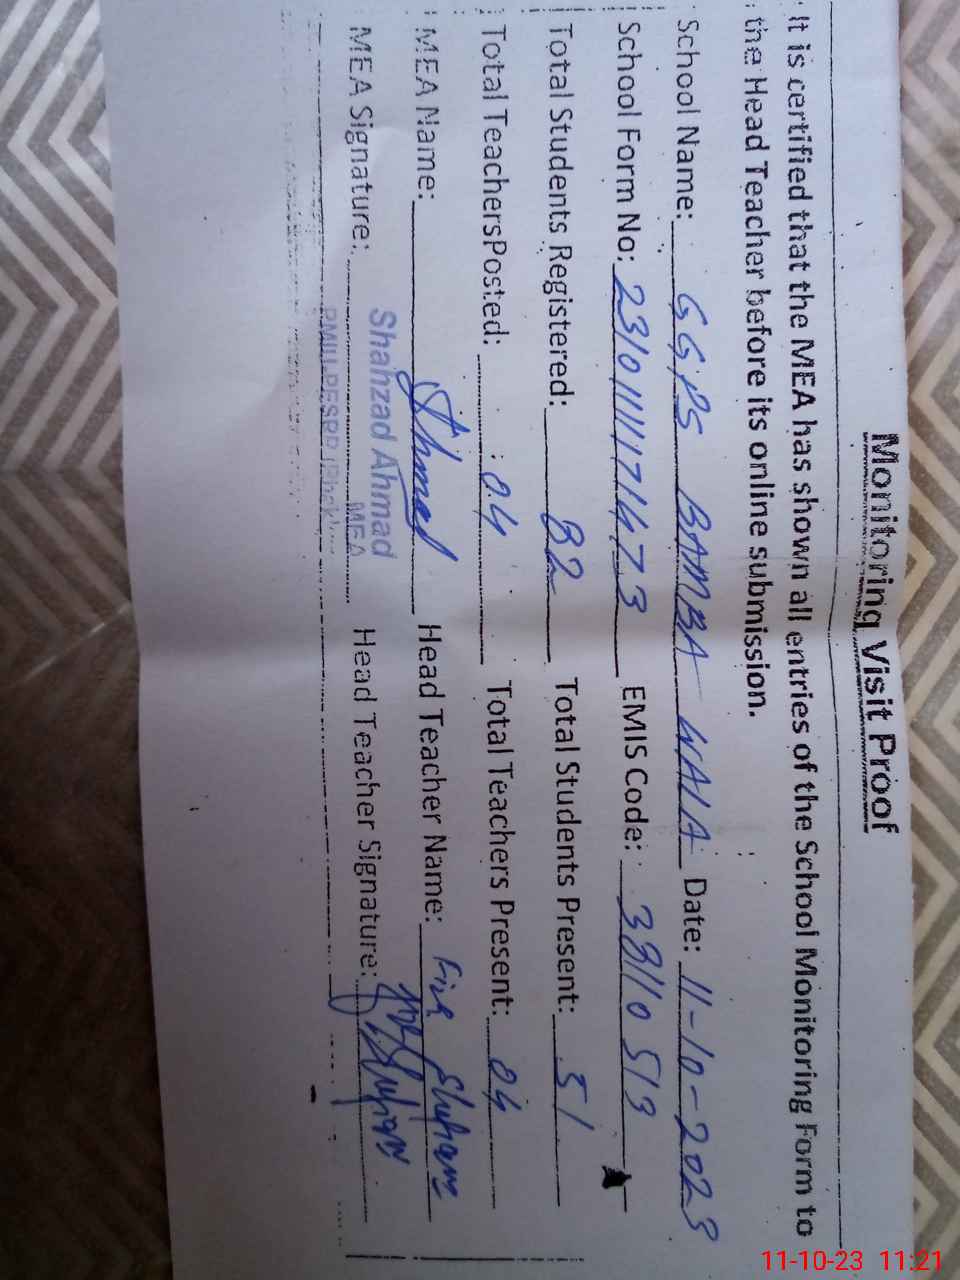 Monitoring Visit Proof
It is certified that the MEA has shown all entries of the School Monitoring Form to
the Head Teacher before its online submission.
School Name: GGPS BAMBA WALA Date: 11-10-2023
School Form No: 2310111171473 EMIS Code: 33110513
Total Students Registered: 82 Total Students Present: 51
Total TeachersPosted: 04 Total Teachers Present: 04
MEA Name: Ahmad Head Teacher Name:
MEA Signature: Head Teacher Signature:
Shahzad Ahmad
MEA
11-10-23 11:21